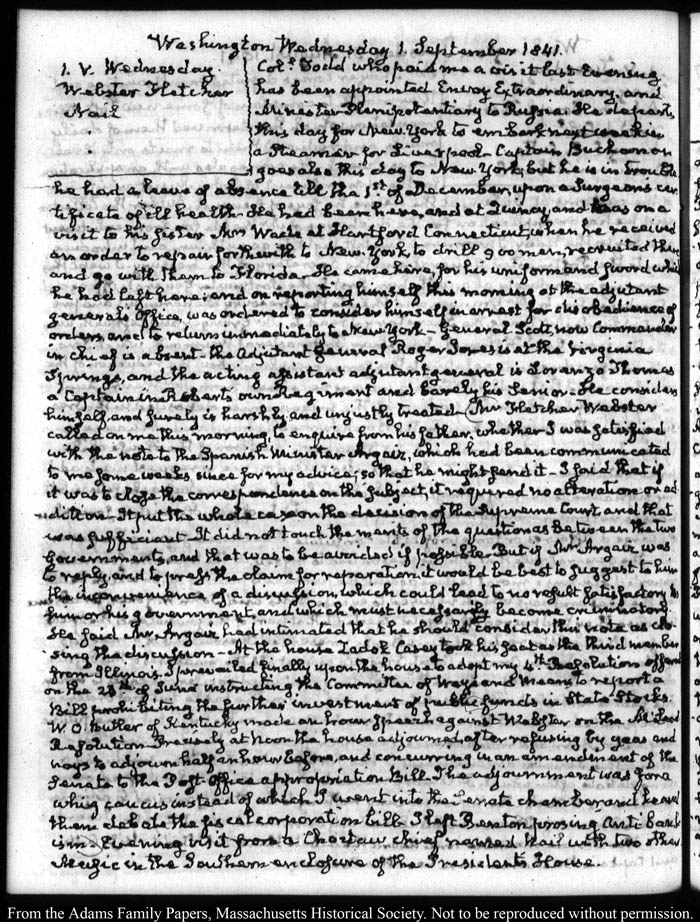 Washington Wednesday 1. September 1841.
1. V. Wednesday.
Webster Fletcher
Nail
Col! Todd who paid me a visit last Evening
has been appointed Envoy Extraordinary, and
Minister Plenipotentiary to Russia. He departs
this day for New York to embark next week in
a Steamer for Liverpool. Captain Buchanan
goes also this day to New York, but he is in trouble
he had a leave of absence till the 1st of December, upon a Surgeon's cer-
tificate of ill health. He had been here, and at Quincy, and was on a
visit to his sister Mrs Wade at Hartford Connecticut, when he received
an order to repair forthwith to New York, to drill 900 men, recruited there
and go with them to Florida. He came here, for his uniform and sword which
he had left here; and on reporting himself this morning at the adjutant
general's Office, was ordered to consider himself in arrest for disobedience of
orders, and to return immediately to New York – General Scott, now Commander
in chief is absent – the Adjutant General Roger Jones is at the Virginia
Springs, and the acting assistant adjutant general is Lorenzo Thomas
a Captain in Robert's own Regiment and barely his Senior. He considers
himself, and surely is harshly, and unjustly treated. Mr Fletcher Webster
called on me this morning, to enquire from his father, whether I was satisfied
with the note to the Spanish Minister Argaiz, which had been communicated
to me some weeks since for my advice; so that he might send it – I said that if
it was to close the correspondence on the subject, it required no alteration or ad-
dition – It put the whole case on the decision of the Supreme Court, and that
was sufficient. It did not touch the merits of the question as between the two
Governments, and that was to be avoided if possible. But if Mr Argaiz was
to reply, and to press the claim for reparation, it would be best to suggest to him
the inconvenience of a discussion, which could lead to no result satisfactory to
him or his government, and which must necessarily become criminatory.
He said Mr Argaiz had intimated that he should consider this note as clo-
sing the discussion – At the house Zadok Casey took his seat as the third member
from Illinois. I prevailed finally upon the house to adopt my 4th Resolution offered
on the 28th of June instructing the Committee of Ways and Means to report a
Bill prohibiting the further investment of public funds in State Stocks.
W. O. Butler of Kentucky made an hour speech against Webster on the McLeod
Resolution. Precisely at Noon the house adjourned, after refusing by yeas and
nays to adjourn half an hour before, and concurring in an amendment of the
Senate to the Post-Office appropriation Bill. The adjournment was for a
whig caucus instead of which I went into the Senate chamber and heard
them debate the fiscal corporation bill. I left Benton prosing Anti Bank
ism. Evening visit from a Choctaw chief named Nail with two others
Music in the Southern enclosure of the Presidents House.
From the Adams Family Papers, Massachusetts Historical Society. Not to be reproduced without permission.